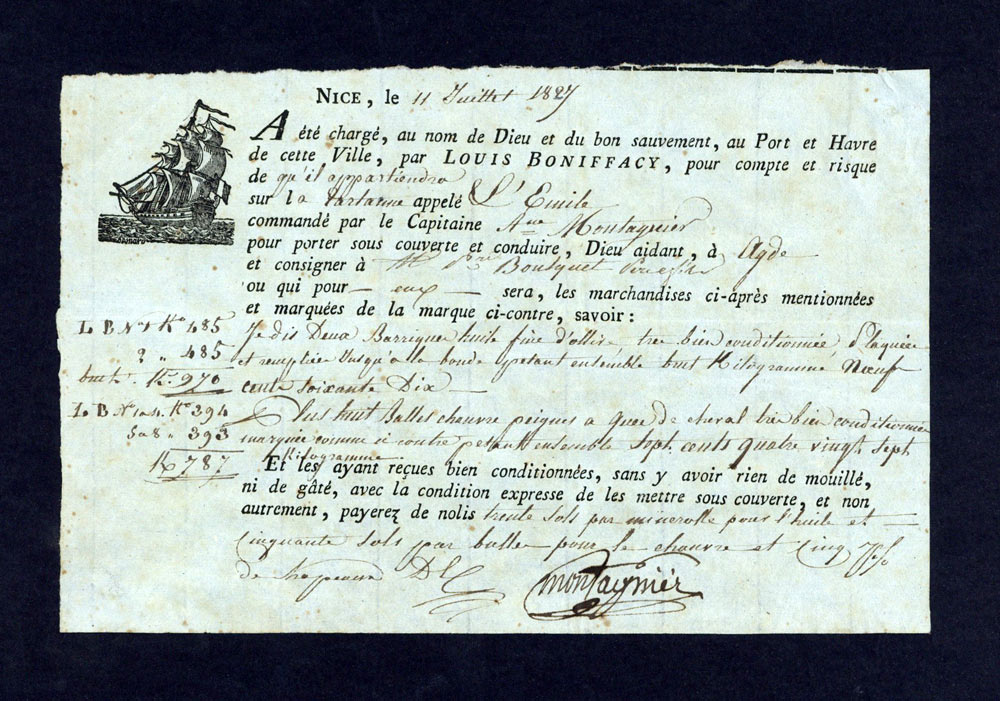 NICE, le 11 Juillet 1827
A été chargé, au nom de Dieu et du bon sauvement, au Port et Havre
de cette Ville, par LOUIS BONIFFACY, pour compte et risque
de qu'il appartiendra
sur la tartanne appelé L'Emile
commandé par le Capitaine Montagnier
pour porter sous couverte et conduire, Dieu aidant, à Agde
et consigner à Bousquet
ou qui pour — eux — sera, les marchandises ci-après mentionnées
et marquées de la marque ci-contre, savoir :
L B N° 1 K° 485
2 „ 485
brut K° 970
Je dis Deux Barriques huile fine d'ollive tres bien conditionnée,
et remplies jusqu'a la bonde pesant ensemble brut Kilogramme Noeuf
cents soixante Dix
L B N° 1 a 4 K° 394
5 a 8 „ 393
K° 787
Plus huit Balles chanvre peignes a queue de cheval tres bien conditionnées
marquées comme ci contre pesant ensemble Sept cents quatre vingt sept
Kilogramme
Et les ayant reçues bien conditionnées, sans y avoir rien de mouillé,
ni de gâté, avec la condition expresse de les mettre sous couverte, et non
autrement, payerez de nolis trente sols par millerolle pour l'huile et
Cinquante sols par balle pour le chanvre et Cinq
de chapeau
Montagnier